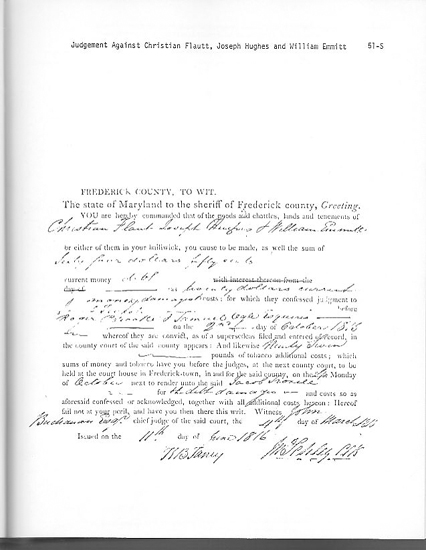 Judgement Against Christian Flautt, Joseph Hughes and William Emmitt 51-S
FREDERICK COUNTY, TO WIT.
The state of Maryland to the sheriff of Frederick county, Greeting.
YOU are hereby commanded that of the goods and chattles, lands and tenements of
Christian Flaut Joseph Hughes & William Emmitt
or either of them in your bailiwick, you cause to be made, as well the sum of
four dollars fifty cents
current money debt with interest thereon from the
day of as twenty dollars current
money damages costs: for which they confessed judgment to
before
Roger Brooke & Samuel Ogle Esquires
on the 2nd day of October 1815
whereof they are convict, as of a supersedeas filed and entered of record, in
the county court of the said county appears: And likewise Ninety Seven
pounds of tobacco additional costs; which
sums of money and tobacco have you before the judges, at the next county court, to be
held at the court house in Frederick-town, in and for the said county, on the Monday
of October next to render unto the said Jacob
for the debt damages and costs so as
aforesaid confessed or acknowledged, together with all additional costs hereon: Hereof
fail not at your peril, and have you then there this writ. Witness John
Buchanan Esqr. chief judge of the said court, the 11th day of March
Issued on the 11th day of June 1816